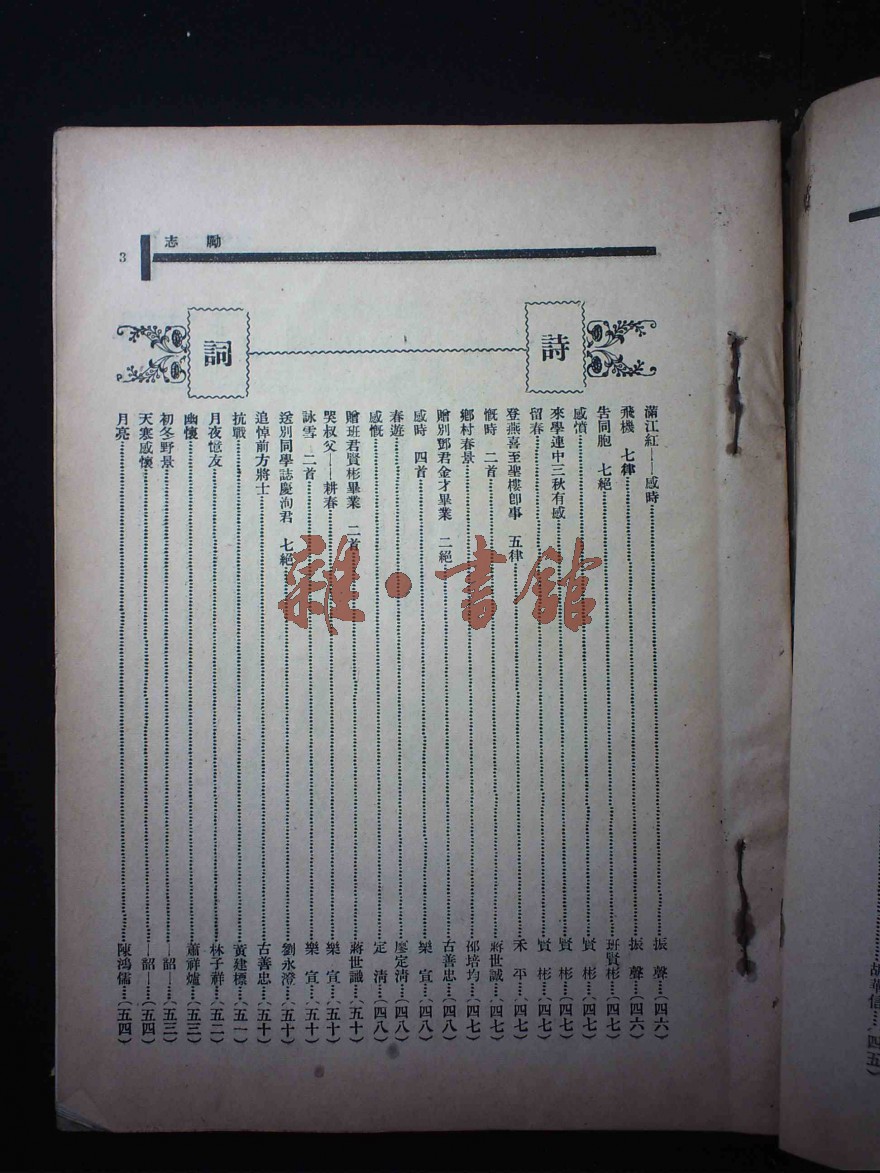 勵志
3
詩
詞
滿江紅——感時……振聲…(四六)
飛機 七律……振聲…(四六)
告同胞 七絕……班賢彬…(四七)
感憤……賢彬…(四七)
來學連中三秋有感……賢彬…(四七)
留春……賢彬…(四七)
登燕喜至聖樓卽事 五律……禾平…(四七)
慨時 二首……蔣世誠…(四七)
鄉村春景……邵培均…(四七)
贈別鄧君金才畢業 二絕……古善忠…(四八)
感時 四首……樂宣…(四八)
春遊……廖定淸…(四八)
感慨……定淸…(四八)
贈班君賢彬畢業 二首……蔣世誠…(五十)
哭叔父——耕春……樂宣…(五十)
詠雪 二首……樂宣…(五十)
送別同學誌慶洵君 七絕……劉永澄…(五十)
追悼前方將士……古善忠…(五十)
抗戰……黃建標…(五一)
月夜憶友……林子祥…(五二)
幽懷……蕭祥爐…(五三)
初冬野景……一韶…(五三)
天寒感懷……一韶…(五四)
月亮……陳鴻儒…(五四)
雜·書館
……胡華信…(四五)